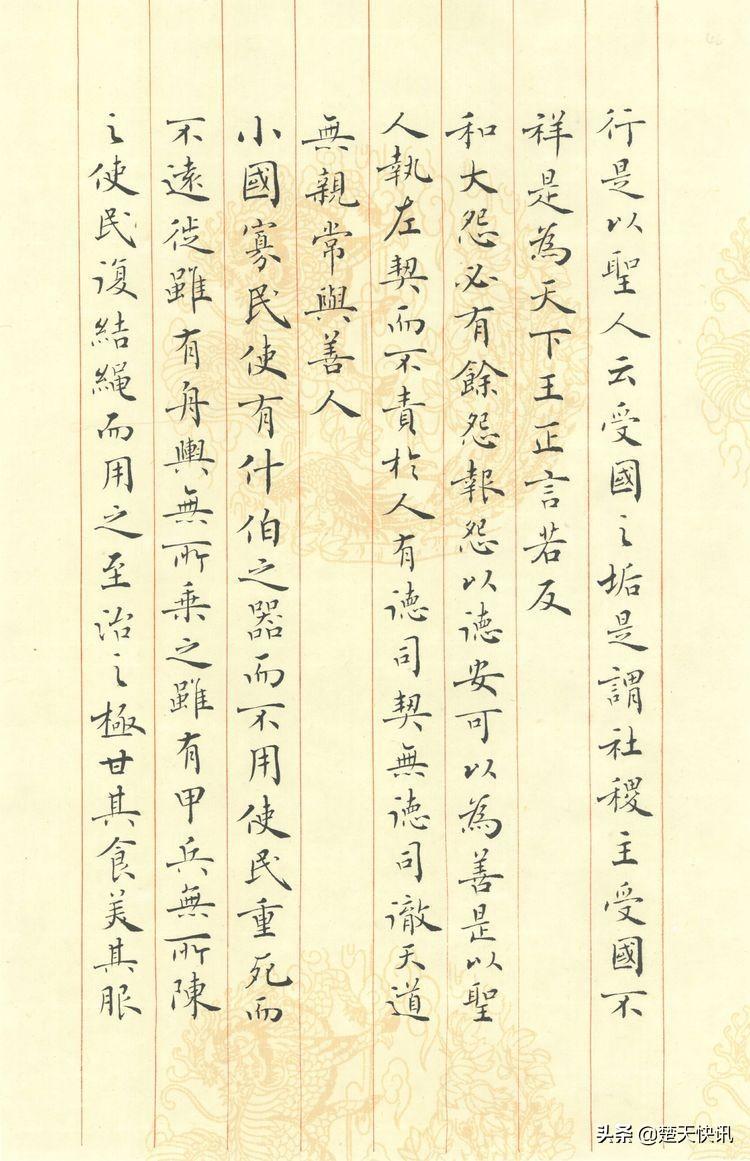 行是以聖人云受國之垢是謂社稷主受國不
祥是為天下王正言若反
和大怨必有餘怨報怨以德安可以為善是以聖
人執左契而不責於人有德司契無德司徹天道
無親常與善人
小國寡民使有什伯之器而不用使民重死而
不遠徙雖有舟輿無所乗之雖有甲兵無所陳
之使民復結繩而用之至治之極甘其食美其服
头条 @楚天快讯